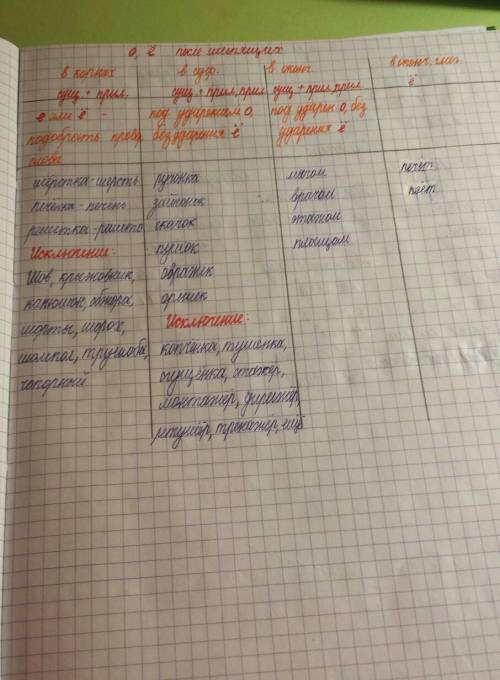 о, ё после шипящих
в корнях в суф. в оконч. в оконч. глаг.
сущ. + прил. сущ. + прил, прил сущ. + прил, прил ё
е или ё – под ударением о, под ударен о, без
подобрать провер. без ударения ё ударения ё
слово
шёрстка - шерсть ручонка мячом печёт
печёнка - печень зайчонок врачом
решетка - решето скачок этажом
Исключение: пушок плющом
Шов, крыжовник, овражек
капюшон, обжора, орешек
шорты, шорох, Исключение:
шомпол, трущоба, копчёнка, тушёнка,
чопорный сгущёнка, стажёр,
монтажёр, дирижёр,
ретушёр, тренажёр, ещё